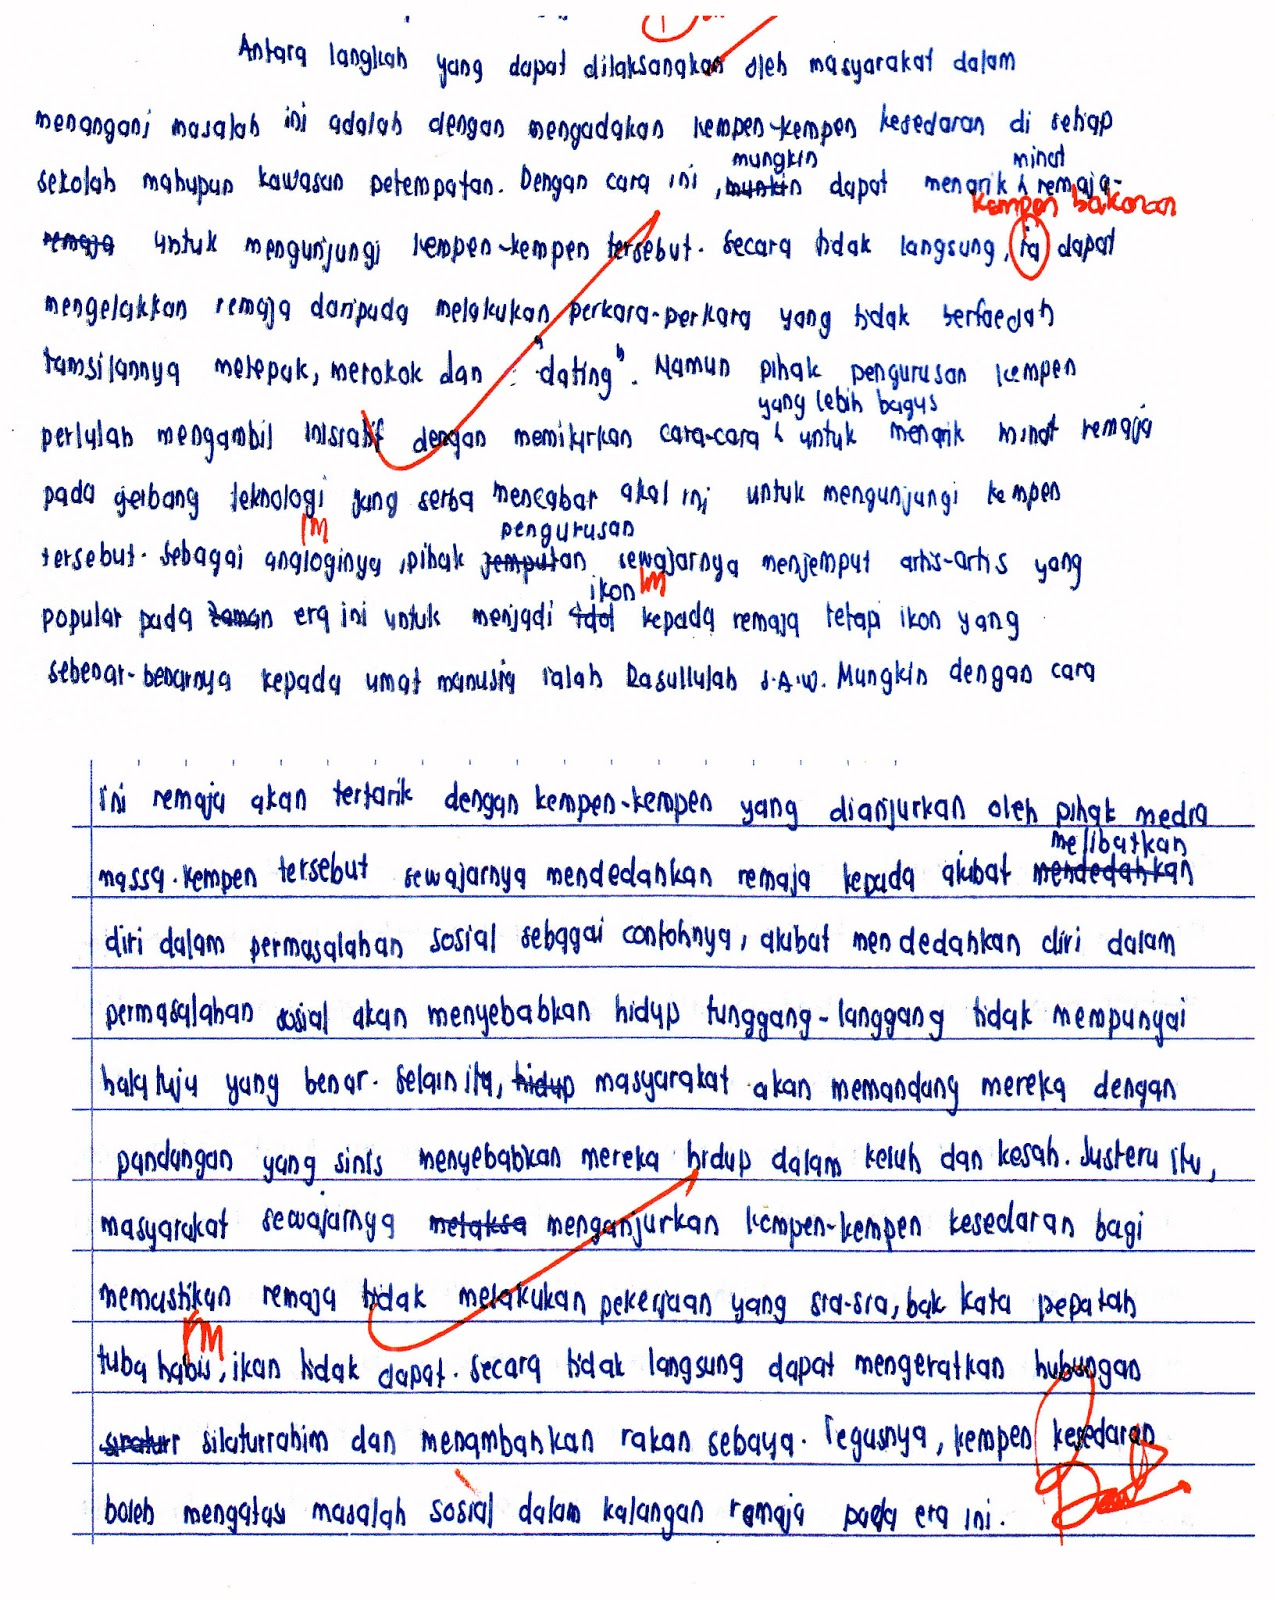 Antara langkah yang dapat dilaksanakan oleh masyarakat dalam
menangani masalah ini adalah dengan mengadakan kempen-kempen kesedaran di setiap
mungkin minat
sekolah mahupun kawasan petempatan. Dengan cara ini, munkin dapat menarik remaja-
kempen bakonan
remaja untuk mengunjungi kempen-kempen tersebut. Secara tidak langsung, ia dapat
mengelakkan remaja daripada melakukan perkara-perkara yang tidak berfaedah
tamsilannya melepak, merokok dan "dating". Namun pihak pengurusan kempen
yang lebih bagus
perlulah mengambil inisiatif dengan memikirkan cara-cara untuk menarik minat remaja
pada gerbang teknologi yang serba mencabar akal ini untuk mengunjungi kempen
pengurusan
tersebut. Sebagai analoginya, pihak jemputan sewajarnya menjemput artis-artis yang
ikon
popular pada zaman era ini untuk menjadi idol kepada remaja tetapi ikon yang
sebenar-benarnya kepada umat manusia ialah Rasullulah S.A.W. Mungkin dengan cara
ini remaja akan tertarik dengan kempen-kempen yang dianjurkan oleh pihak media
melibatkan
massa. Kempen tersebut sewajarnya mendedahkan remaja kepada akibat mendedahkan
diri dalam permasalahan sosial sebagai contohnya, akibat mendedahkan diri dalam
permasalahan sosial akan menyebabkan hidup tunggang-langgang tidak mempunyai
halatuju yang benar. Selain itu, hidup masyarakat akan memandang mereka dengan
pandangan yang sinis menyebabkan mereka hidup dalam keluh dan kesah. Justeru itu,
masyarakat sewajarnya melaksa menganjurkan kempen-kempen kesedaran bagi
memastikan remaja tidak melakukan pekerjaan yang sia-sia, bak kata pepatah
tuba habis, ikan tidak dapat. Secara tidak langsung dapat mengeratkan hubungan
silaturrahim dan menambahkan rakan sebaya. Tegasnya, kempen kesedaran
boleh mengatasi masalah sosial dalam kalangan remaja pada era ini.